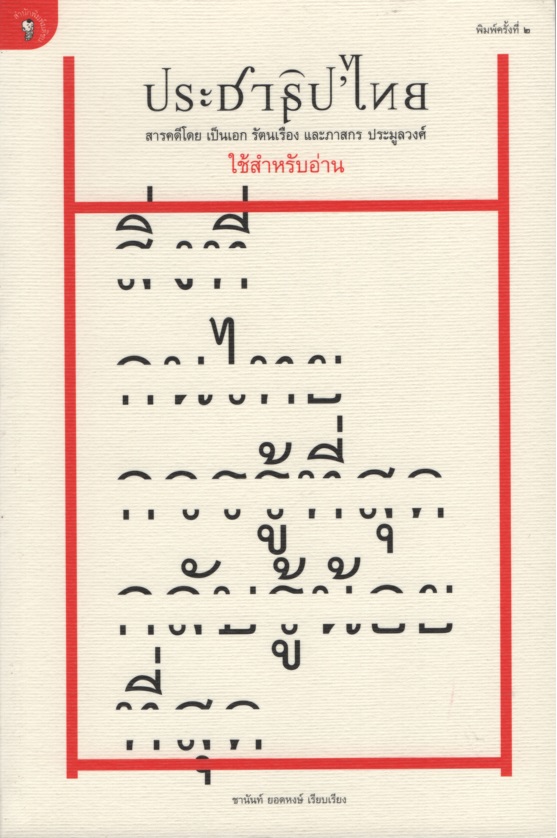 พิมพ์ครั้งที่ ๒
ประชาธิป'ไทย
สารคดีโดย เป็นเอก รัตนเรือง และภาสกร ประมูลวงศ์
ใช้สำหรับอ่าน
สิ่งที่
คนไทย
ควรรู้ที่สุด
กลับรู้น้อย
ที่สุด
ชานันท์ ยอดหงษ์ เรียบเรียง